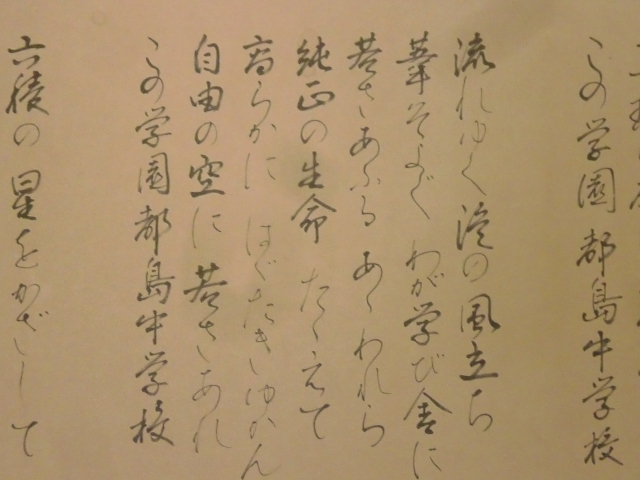 この学園都島中学校
流れゆく淀の風立ち
葦そよぐ わが学び舎に
若さあふる あゝわれら
純正の生命 たゝえて
高らかに はゞたきゆかん
自由の空に 若さあれ
この学園都島中学校
六稜の 星をかざして